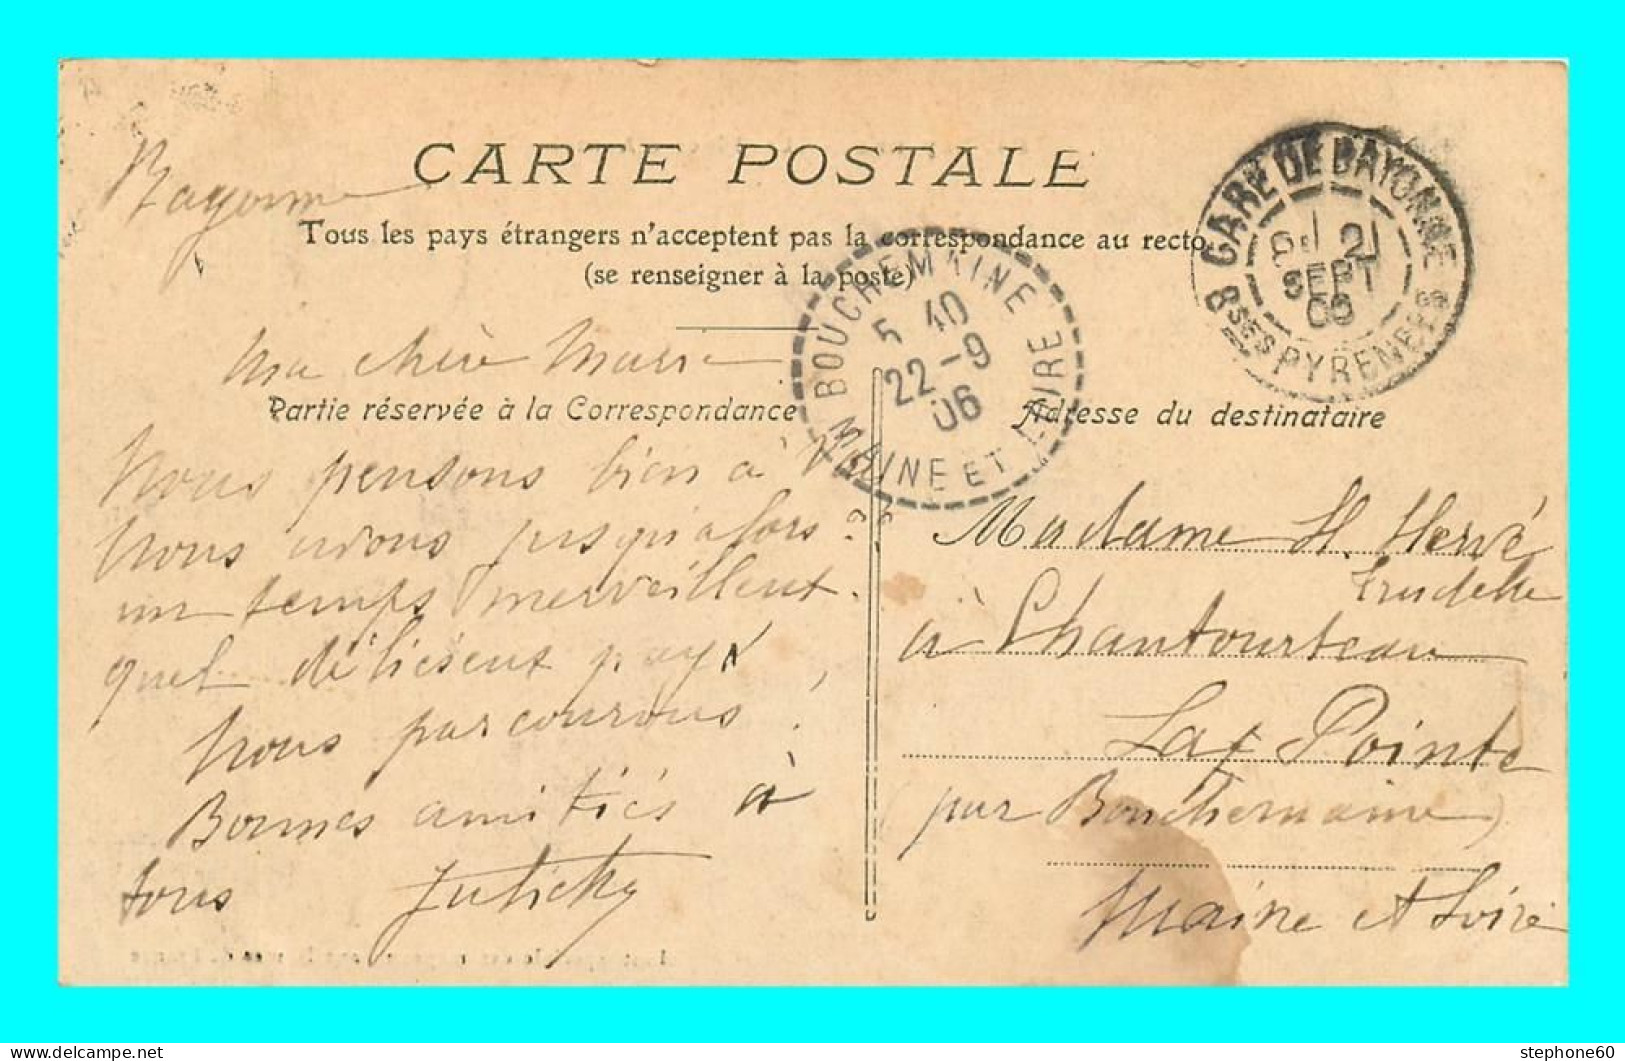 CARTE POSTALE
Bayonne
Tous les pays étrangers n'acceptent pas la correspondance au recto
(se renseigner à la poste)
GARE DE BAYONNE
21
SEPT
06
BSES PYRENEES
BOUCHEMAINE
5 40
22-9
06
MAINE ET LOIRE
Ma chère Marie
Partie réservée à la Correspondance
Nous pensons bien à
Nous avons jusqu'alors
un temps merveilleux.
quel délicieux pays
Nous parcourons!
Bonnes amitiés à
tous
Adresse du destinataire
Madame H. Hervé
Trudelle
à Chantourteau
La Pointe
(par Bouchemaine)
Maine et Loire
stephone60